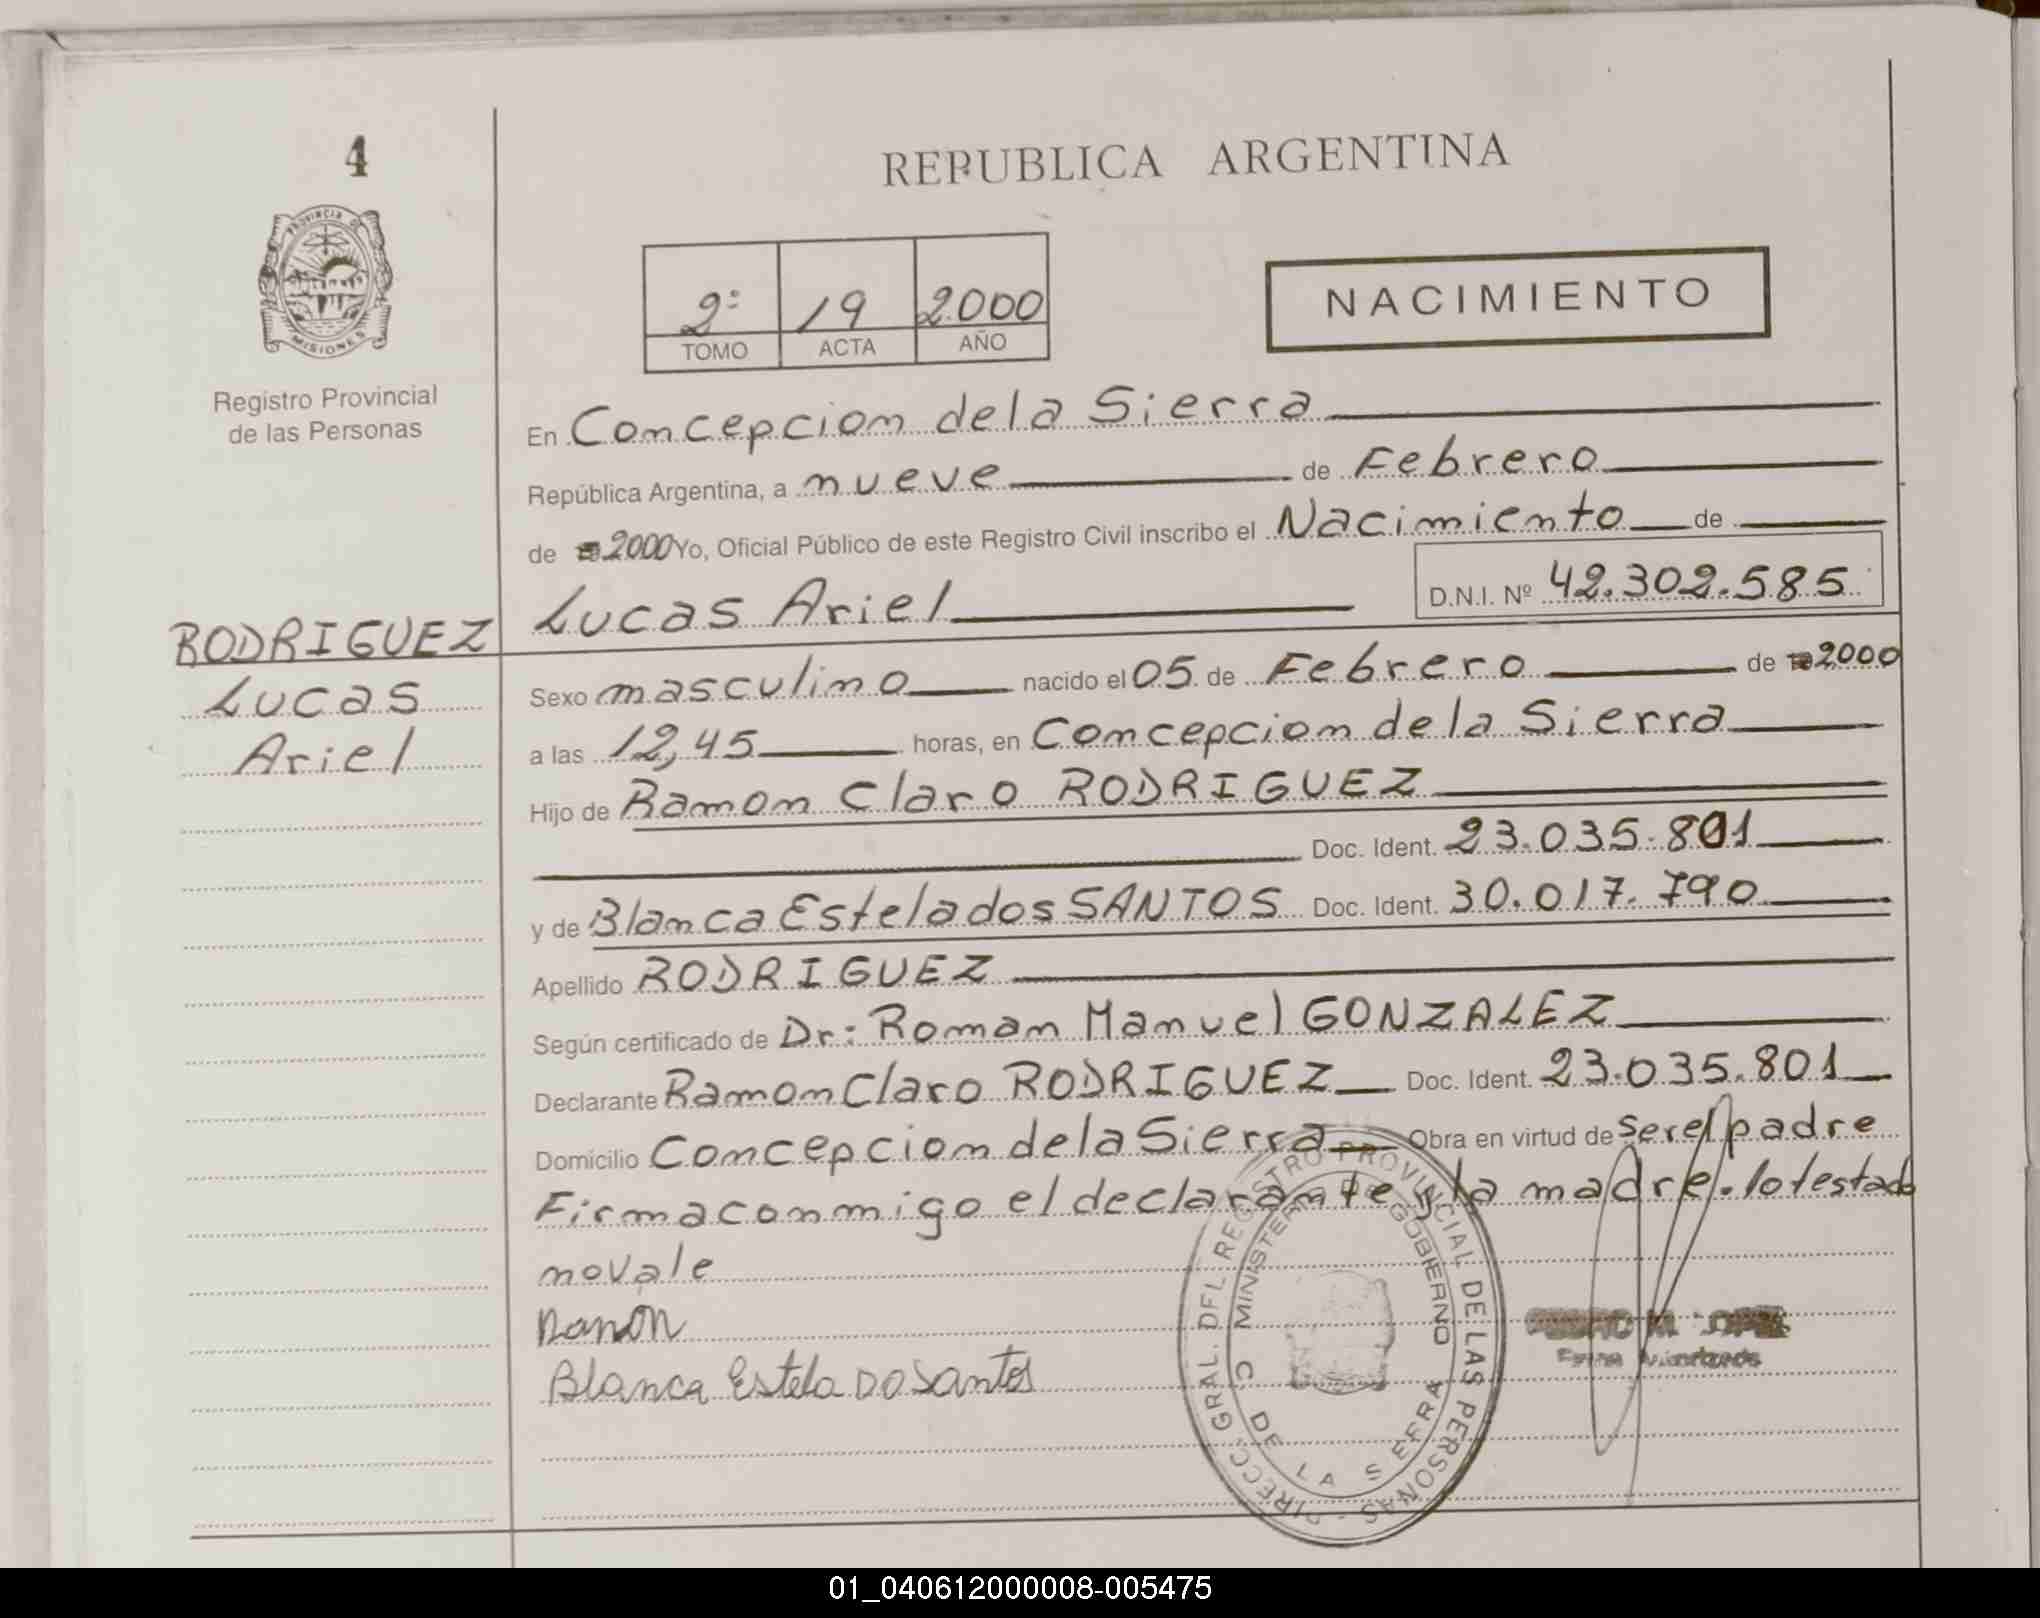 4
REPUBLICA ARGENTINA
PROVINCIA DE
MISIONES
Registro Provincial
de las Personas
2º 19 2000
TOMO ACTA AÑO
NACIMIENTO
En Concepcion de la Sierra
República Argentina, a nueve de Febrero
de 2000 Yo, Oficial Público de este Registro Civil inscribo el Nacimiento de
Lucas Ariel D.N.I. Nº 42.302.585
RODRIGUEZ
Lucas
Ariel
Sexo masculino nacido el 05 de Febrero de 2000
a las 12,45 horas, en Concepcion de la Sierra
Hijo de Ramon Claro RODRIGUEZ
Doc. Ident. 23.035.801
y de Blanca Estela dos SANTOS Doc. Ident. 30.017.790
Apellido RODRIGUEZ
Según certificado de Dr: Roman Manuel GONZALEZ
Declarante Ramon Claro RODRIGUEZ Doc. Ident. 23.035.801
Domicilio Concepcion de la Sierra Obra en virtud de ser el padre
Firma conmigo el declarante y la madre. lo testado
no vale
Ramon
Blanca Estela Do Santos
DIRECC. GRAL. DEL REGISTRO PROVINCIAL DE LAS PERSONAS -
MINISTERIO DE GOBIERNO
C. DE LA SIERRA
Firma Autorizada
01_040612000008-005475